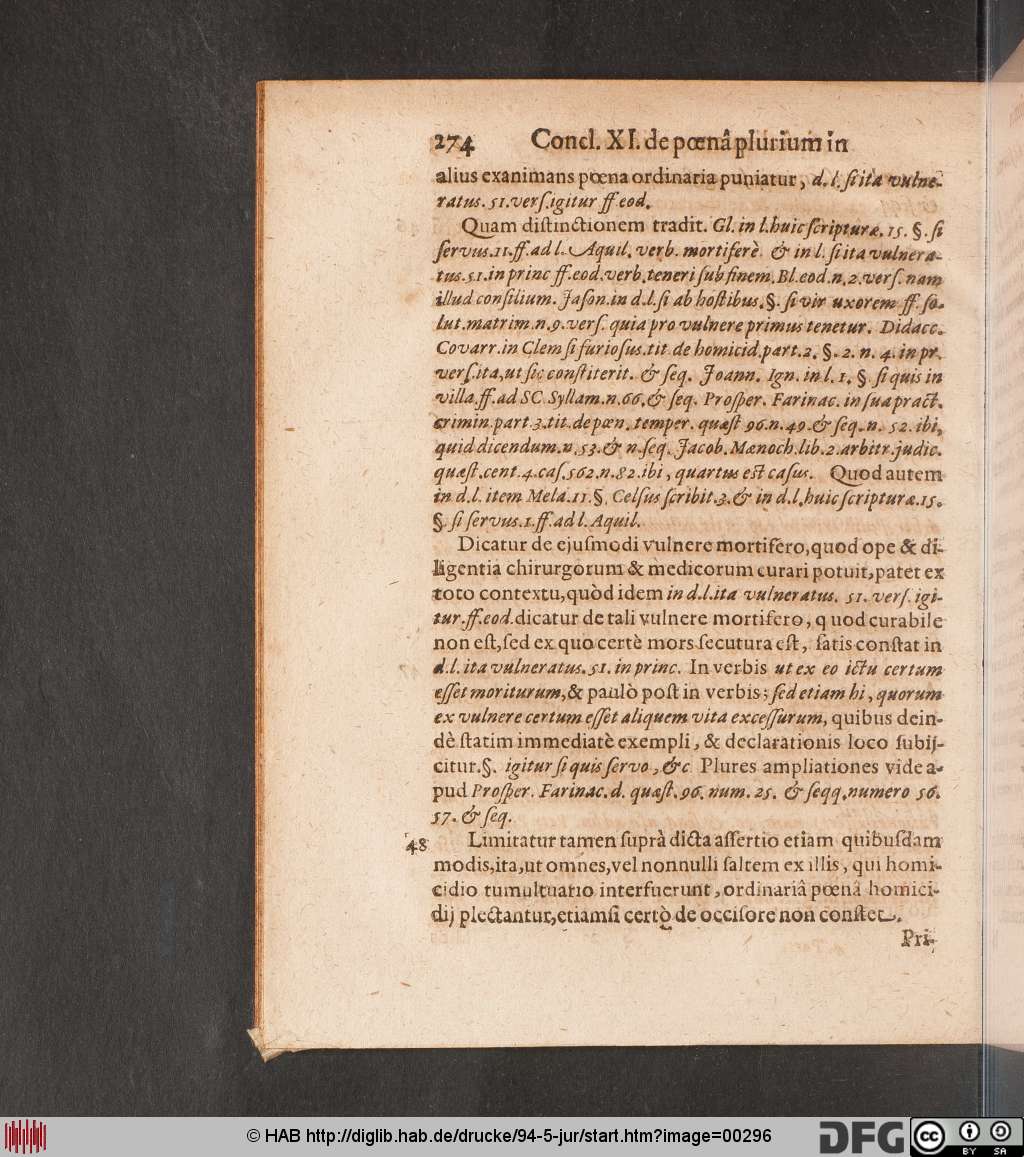 274 Concl. XI. de pœnâ plurium in
alius exanimans pœna ordinaria puniatur, d. l. si ita vulne-
ratus. 51. vers. igitur ff. eod.
Quam distinctionem tradit. Gl. in l. huic scripturæ. 15. §. si
servus. 11. ff. ad l. Aquil. verb. mortiferè. & in l. si ita vulnera-
tus. 51. in princ ff. eod. verb. teneri sub finem. Bl. eod. n. 2. vers. nam
illud consilium. Jason. in d. l. si ab hostibus. §. si vir uxorem ff. so-
lut. matrim. n. 9. vers. quia pro vulnere primus tenetur. Didacc.
Covarr. in Clem si furiosus. tit de homicid. part. 2. §. 2. n. 4. in pr.
vers. ita, ut sic constiterit. & seq. Joann. Ign. in l. 1. §. si quis in
villa. ff. ad SC Syllam. n. 66. & seq. Prosper. Farinac. in sua pract.
crimin. part. 3. tit. de pœn. temper. quæst 96. n. 49. & seq. n. 52. ibi,
quid dicendum. n. 53. & n. seq. Jacob. Mænoch. lib. 2. arbitr. judic.
quæst. cent. 4. cas. 562. n. 82. ibi, quartus est casus. Quod autem
in d. l. item Mela. 11. §. Celsus scribit. 3. & in d. l. huic scripturæ. 15.
§. si servus. 1. ff. ad l. Aquil.
Dicatur de ejusmodi vulnere mortifero, quod ope & di-
ligentia chirurgorum & medicorum curari potuit, patet ex
toto contextu, quòd idem in d. l. ita vulneratus. 51. vers. igi-
tur. ff. eod. dicatur de tali vulnere mortifero, quod curabile
non est, sed ex quo certè mors secutura est, satis constat in
d. l. ita vulneratus. 51. in princ. In verbis ut ex eo ictu certum
esset moriturum, & paulò post in verbis; sed etiam hi, quorum
ex vulnere certum esset aliquem vita excessurum, quibus dein-
dè statim immediatè exempli, & declarationis loco subij-
citur. §. igitur si quis servo, &c Plures ampliationes vide a-
pud Prosper. Farinac. d. quæst. 96. num. 25. & seqq. numero 56.
57. & seq.
48 Limitatur tamen suprà dicta assertio etiam quibusdam
modis, ita, ut omnes, vel nonnulli saltem ex illis, qui homi-
cidio tumultuario interfuerunt, ordinariâ pœnâ homici-
dij plectantur, etiamsi certò de occisore non constet.
Pri-
© HAB http://diglib.hab.de/drucke/94-5-jur/start.htm?image=00296
DFG
cc BY SA